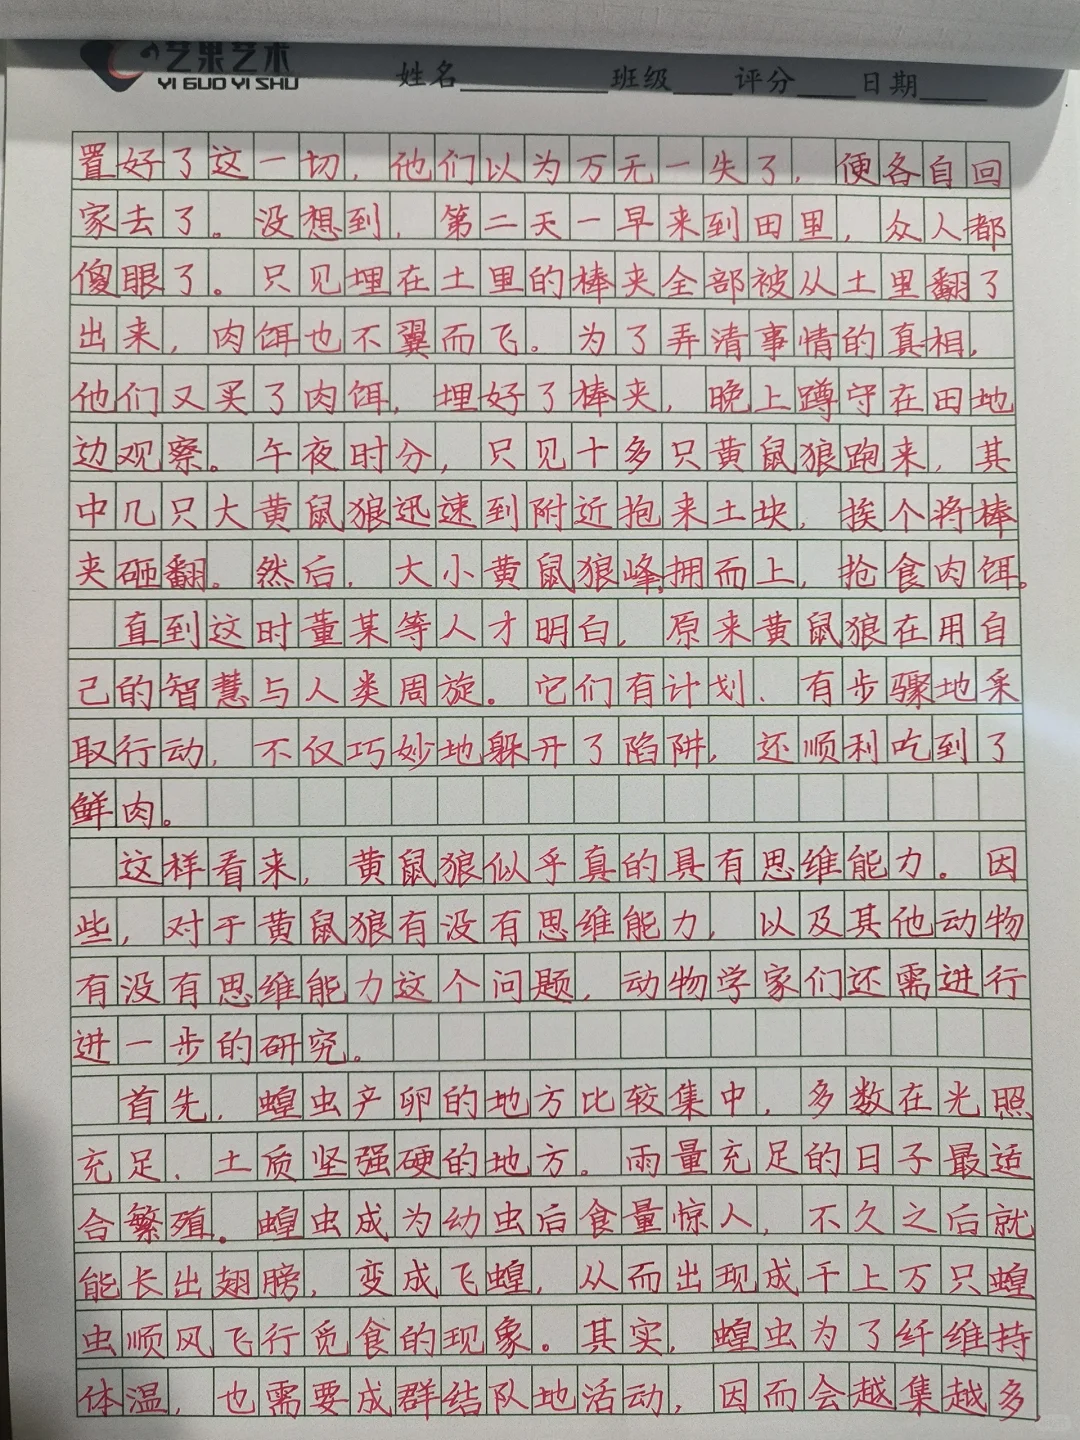 艺果艺术
YI GUO YI SHU
姓名 班级 评分 日期
置好了这一切，他们以为万无一失了，便各自回
家去了。没想到，第二天一早来到田里，众人都
傻眼了。只见埋在土里的棒夹全部被从土里翻了
出来，肉饵也不翼而飞。为了弄清事情的真相，
他们又买了肉饵，埋好了棒夹，晚上蹲守在田地
边观察。午夜时分，只见十多只黄鼠狼跑来，其
中几只大黄鼠狼迅速到附近抱来土块，挨个将棒
夹砸翻。然后，大小黄鼠狼峰拥而上，抢食肉饵。
直到这时董某等人才明白，原来黄鼠狼在用自
己的智慧与人类周旋。它们有计划、有步骤地采
取行动，不仅巧妙地躲开了陷阱，还顺利吃到了
鲜肉。
这样看来，黄鼠狼似乎真的具有思维能力。因
些，对于黄鼠狼有没有思维能力，以及其他动物
有没有思维能力这个问题，动物学家们还需进行
进一步的研究。
首先，蝗虫产卵的地方比较集中，多数在光照
充足、土质坚强硬的地方。雨量充足的日子最适
合繁殖。蝗虫成为幼虫后食量惊人，不久之后就
能长出翅膀，变成飞蝗，从而出现成千上万只蝗
虫顺风飞行觅食的现象。其实，蝗虫为了纤维持
体温，也需要成群结队地活动，因而会越集越多